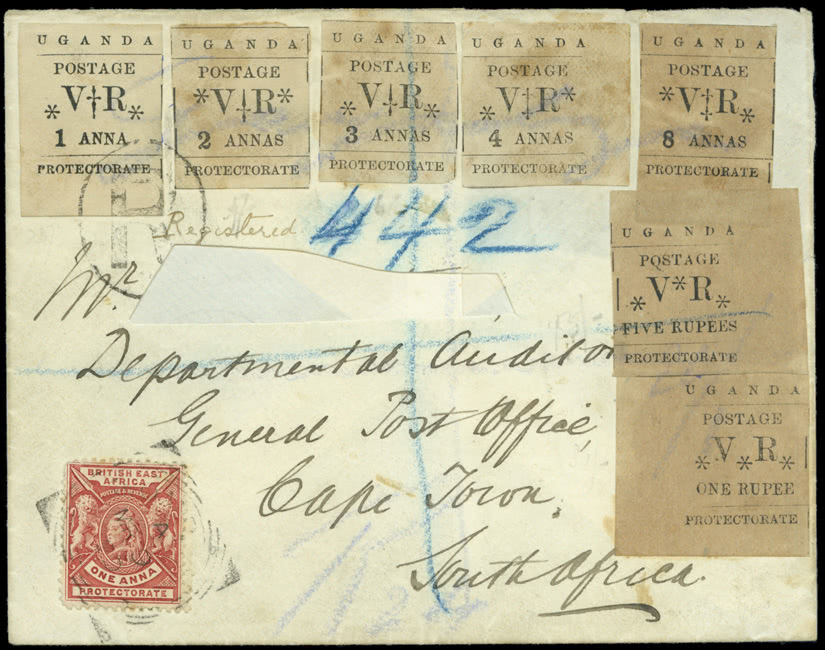 UGANDA
POSTAGE
*V†R*
1 ANNA
PROTECTORATE
UGANDA
POSTAGE
*V†R*
2 ANNAS
PROTECTORATE
UGANDA
POSTAGE
*V†R*
3 ANNAS
PROTECTORATE
UGANDA
POSTAGE
*V‡R*
4 ANNAS
PROTECTORATE
UGANDA
POSTAGE
*V‡R*
8 ANNAS
PROTECTORATE
Registered
442
UGANDA
POSTAGE
*V*R*
FIVE RUPEES
PROTECTORATE
UGANDA
POSTAGE
*V*R*
ONE RUPEE
PROTECTORATE
Mr.
Departmental Auditor
General Post Office,
Cape Town,
South Africa.
BRITISH EAST
AFRICA
POSTAGE & REVENUE
ONE ANNA
PROTECTORATE